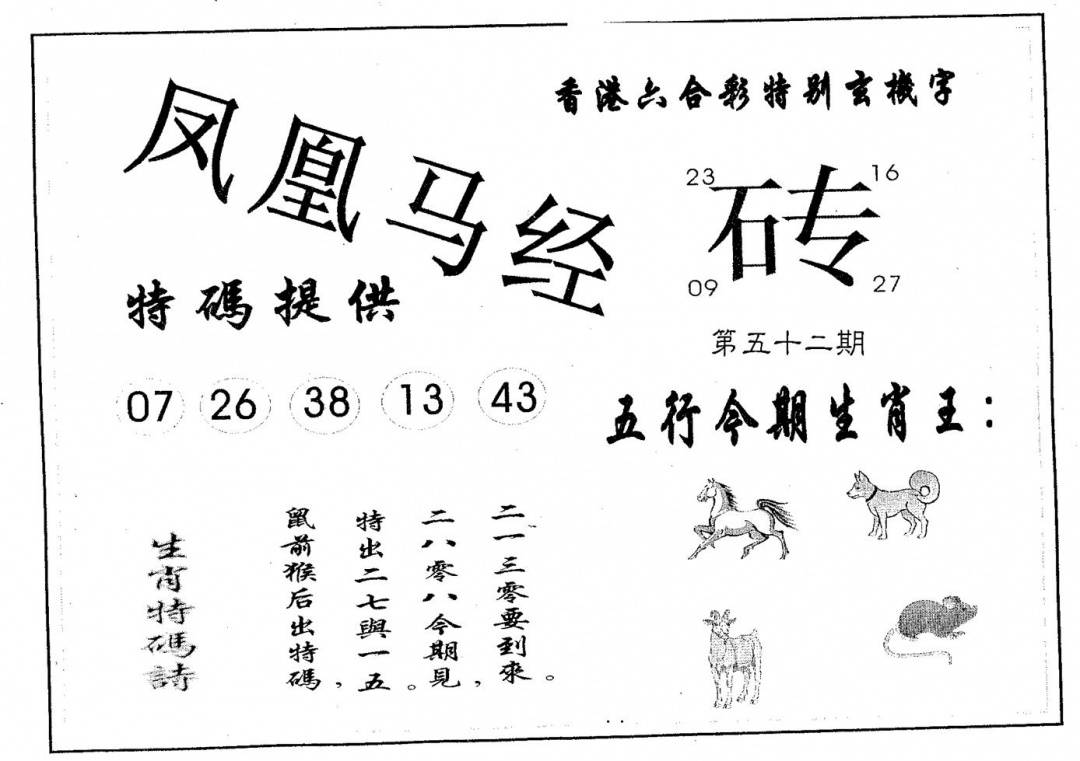 香港六合彩特别玄機字
凤凰马经
23
16
砖
09
27
特碼提供
第五十二期
07 26 38 13 43
五行今期生肖王：
生肖特碼詩
鼠前猴后出特碼，
特出二七與一五。
二八零八今期見，
二一三零要到來。